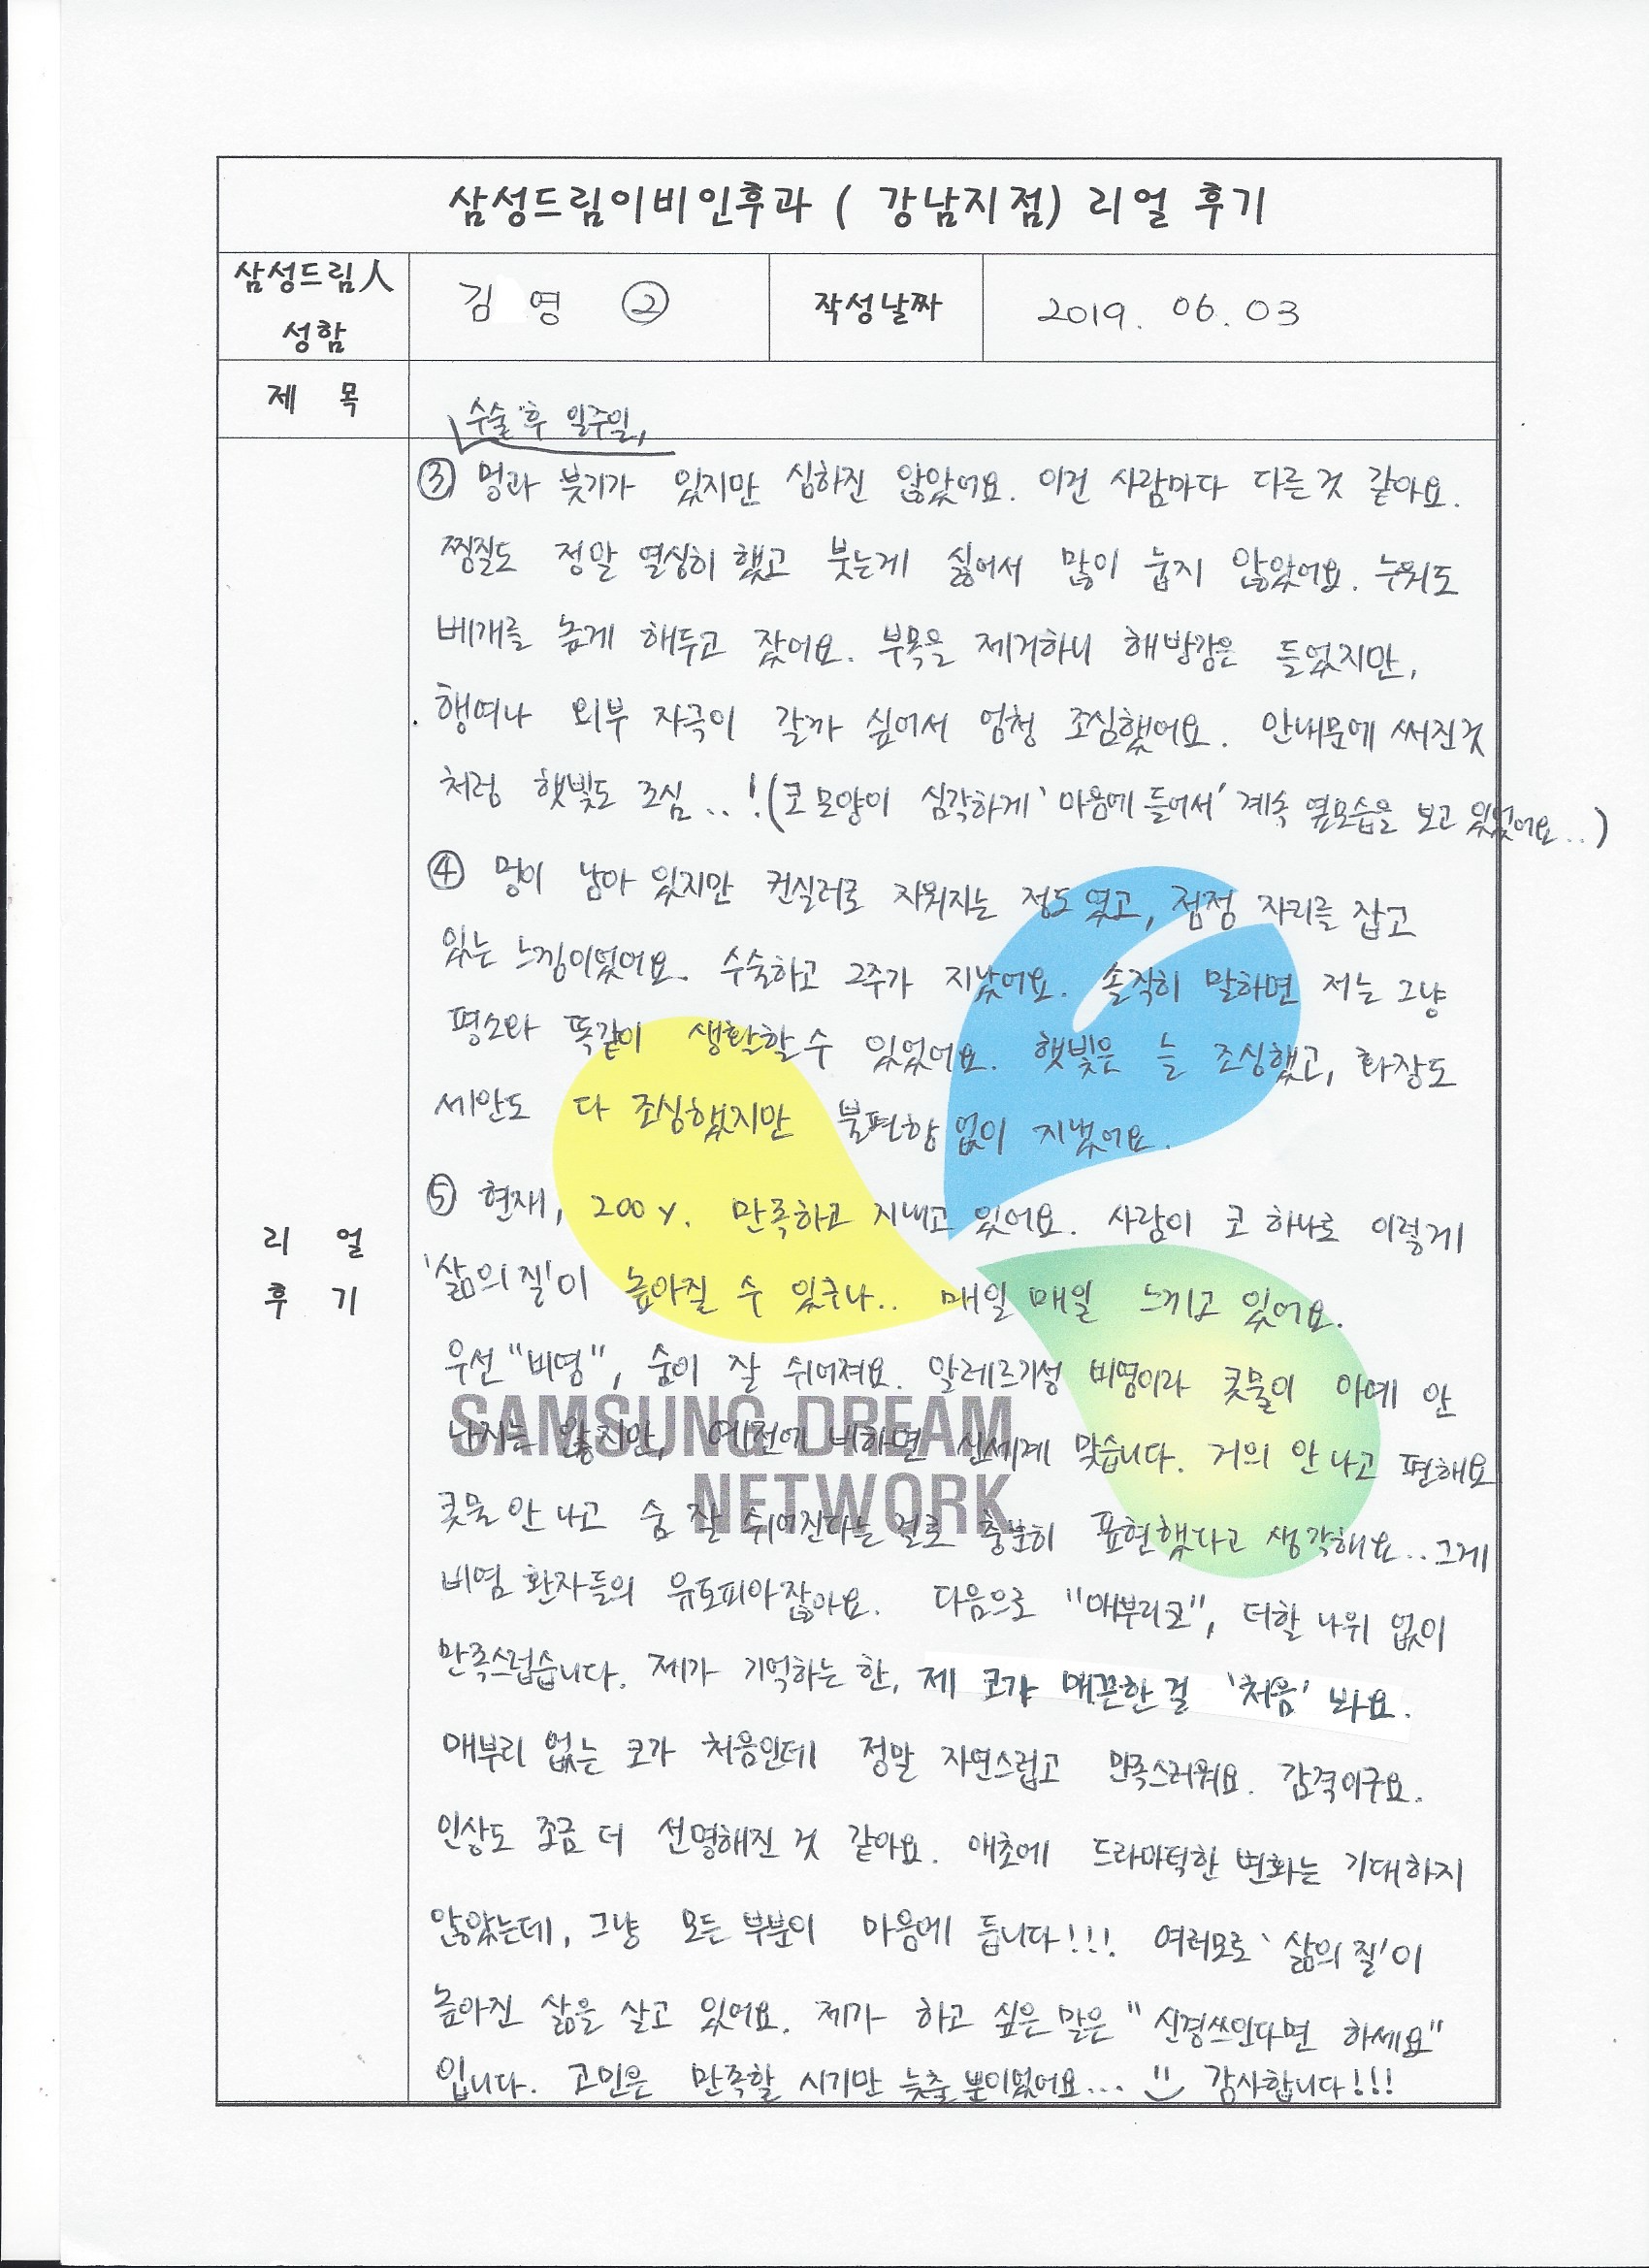 삼성드림이비인후과 ( 강남지점) 리얼 후기
삼성드림人
성함
김 영 ②
작성날짜
2019. 06. 03
제 목
수술 후 일주일,
리 얼
후 기
③ 멍과 붓기가 있지만 심하진 않았어요. 이건 사람마다 다른 것 같아요.
찜질도 정말 열심히 했고 붓는게 싫어서 많이 눕지 않았어요. 누워도
베개를 높게 해두고 잤어요. 부목을 제거하니 해방감은 들었지만,
행여나 외부 자극이 갈까 싶어서 엄청 조심했어요. 안내문에 써진것
처럼 햇빛도 조심..! (코 모양이 심각하게 '마음에 들어서' 계속 옆모습을 보고 있었어요..)
④ 멍이 남아 있지만 컨실러로 지워지는 정도였고, 점점 자리를 잡고
있는 느낌이었어요. 수술하고 2주가 지났어요. 솔직히 말하면 저는 그냥
평소와 똑같이 생활할 수 있었어요. 햇빛은 늘 조심했고, 화장도
세안도 다 조심했지만 불편함 없이 지냈어요.
⑤ 현재, 200%. 만족하고 지내고 있어요. 사람이 코 하나로 이렇게
'삶의 질'이 높아질 수 있구나.. 매일 매일 느끼고 있어요.
우선 "비염", 숨이 잘 쉬어져요. 알레르기성 비염이라 콧물이 아예 안
나지는 않지만, 예전에 비하면 신세계 맞습니다. 거의 안 나고 편해요
콧물 안 나고 숨 잘 쉬어진다는 걸로 충분히 표현했다고 생각해요.. 그게
비염 환자들의 유토피아잖아요. 다음으로 "매부리코", 더할 나위 없이
만족스럽습니다. 제가 기억하는 한, 제 코가 매끈한 걸 '처음' 봐요.
매부리 없는 코가 처음인데 정말 자연스럽고 만족스러워요. 감격이구요.
인상도 조금 더 선명해진 것 같아요. 애초에 드라마틱한 변화는 기대하지
않았는데, 그냥 모든 부분이 마음에 듭니다!!! 여러모로 '삶의 질'이
높아진 삶을 살고 있어요. 제가 하고 싶은 말은 "신경쓰인다면 하세요"
입니다. 고민은 만족할 시기만 늦출 뿐이었어요... 감사합니다!!!
SAMSUNG DREAM
NETWORK